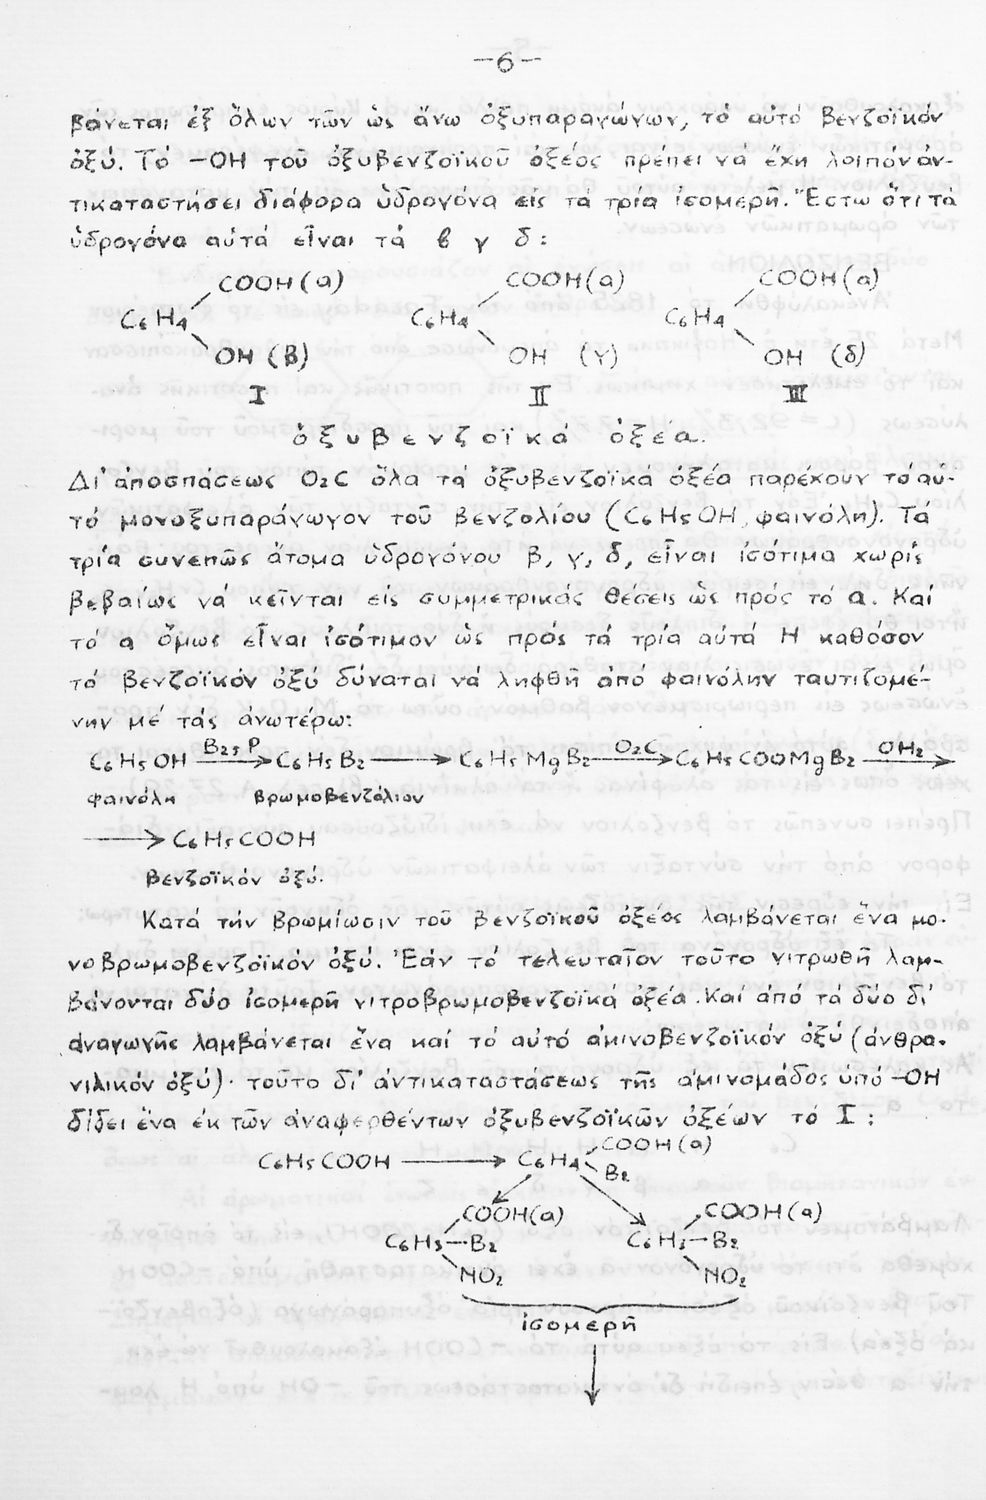 —6—
βάνεται ἐξ ὅλων τῶν ὡς ἄνω ὀξυπαραγώγων, τό αὐτό βενζοϊκόν
ὀξύ. Τό —OH τοῦ ὀξυβενζοϊκοῦ ὀξέος πρέπει νά ἔχη λοιπόν ἀν-
τικαταστήσει διάφορα ὑδρογόνα εἰς τά τρία ἰσομερῆ. Ἔστω ὅτι τά
ὑδρογόνα αὐτά εἶναι τά β γ δ :
COOH(α) COOH(α) COOH(α)
C₆H₄ C₆H₄ C₆H₄
OH (β) OH (γ) OH (δ)
I II III
ὀξυβενζοϊκά ὀξέα.
Δι' ἀποσπάσεως O₂C ὅλα τά ὀξυβενζοϊκά ὀξέα παρέχουν τό αὐ-
τό μονοξυπαράγωγον τοῦ βενζολίου (C₆H₅OH, φαινόλη). Τά
τρία συνεπῶς ἄτομα ὑδρογόνου β, γ, δ, εἶναι ἰσότιμα χωρίς
βεβαίως νά κεῖνται εἰς συμμετρικάς θέσεις ὡς πρός τό α. Καί
τό α ὅμως εἶναι ἰσότιμον ὡς πρός τά τρία αὐτά H καθόσον
τό βενζοϊκόν ὀξύ δύναται νά ληφθῆ ἀπό φαινόλην ταυτιζομέ-
νην μέ τάς ἀνωτέρω:
C₆H₅OH —B₂₅P→ C₆H₅B₂ ⟶ C₆H₅MgB₂ —O₂C→ C₆H₅COOMgB₂ —OH₂→
φαινόλη βρωμοβενζόλιον
⟶ C₆H₅COOH
βενζοϊκόν ὀξύ.
Κατά τήν βρωμίωσιν τοῦ βενζοϊκοῦ ὀξέος λαμβάνεται ἕνα μο-
νοβρωμοβενζοϊκόν ὀξύ. Ἐάν τό τελευταῖον τοῦτο νιτρωθῆ λαμ-
βάνονται δύο ἰσομερῆ νιτροβρωμοβενζοϊκά ὀξέα. Καί ἀπό τά δύο δι'
ἀναγωγῆς λαμβάνεται ἕνα καί τό αὐτό ἀμινοβενζοϊκόν ὀξύ (ἀνθρα-
νιλικόν ὀξύ)· τοῦτο δι' ἀντικαταστάσεως τῆς ἀμινομάδος ὑπό —OH
δίδει ἕνα ἐκ τῶν ἀναφερθέντων ὀξυβενζοϊκῶν ὀξέων τό I :
C₆H₅COOH ⟶ C₆H₄ COOH(α)
B₂
COOH(α) COOH(α)
C₆H₃—B₂ C₆H₃—B₂
NO₂ NO₂
ἰσομερῆ